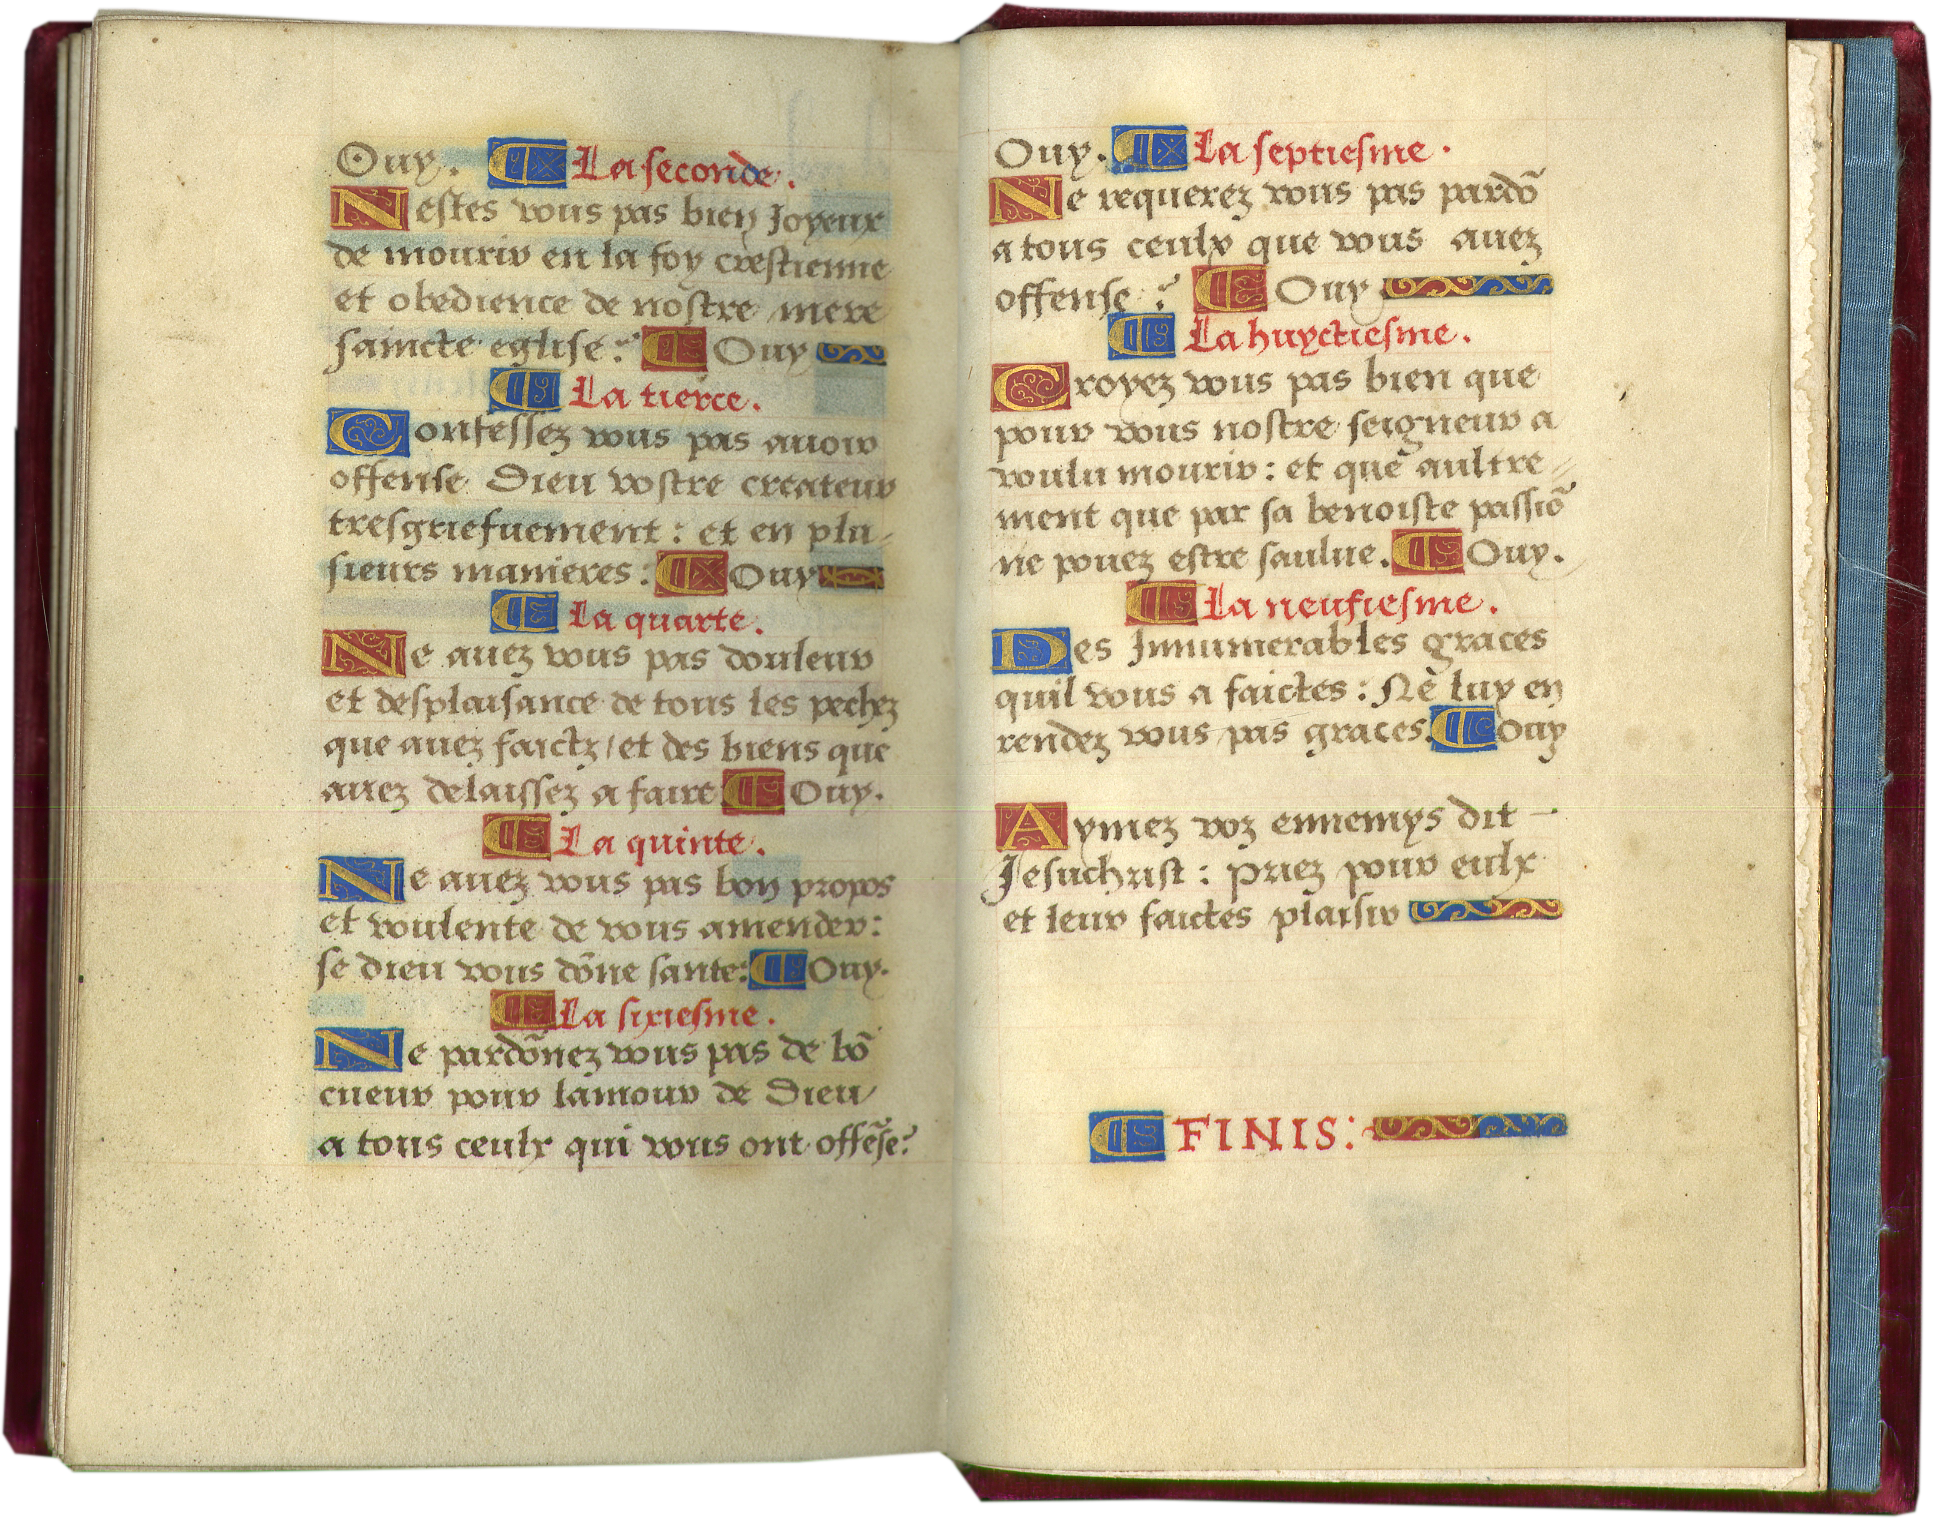 Ouy. La seconde.
Nestes vous pas bien Joyeux
de mourir en la foy crestienne
et obedience de nostre mere
saincte eglise? Ouy
La tierce.
Confessez vous pas auoir
offense Dieu vostre createur
tresgriefuement : et en plu-
sieurs manieres : Ouy
La quarte.
Ne auez vous pas douleur
et desplaisance de tous les pechez
que auez faictz / et des biens que
auez delaissez a faire Ouy.
La quinte.
Ne auez vous pas bon propos
et voulente de vous amender:
se dieu vous dõne sante: Ouy.
La sixiesme.
Ne pardõnez vous pas de bõ
cueur pour lamour de Dieu
a tous ceulx qui vous ont offẽse?
Ouy. La septiesme.
Ne requerez vous pas pardõ
a tous ceulx que vous auez
offense? Ouy
La huyctiesme.
Croyez vous pas bien que
pour vous nostre seigneur a
voulu mourir : et que aultre=
ment que par sa benoiste passiõ
ne pouez estre saulue. Ouy.
La neufiesme.
Des Innumerables graces
quil vous a faictes : Ne luy en
rendez vous pas graces. Ouy
Aymez voz ennemys dit -
Jesuchrist : priez pour eulx
et leur faictes plaisir
FINIS: